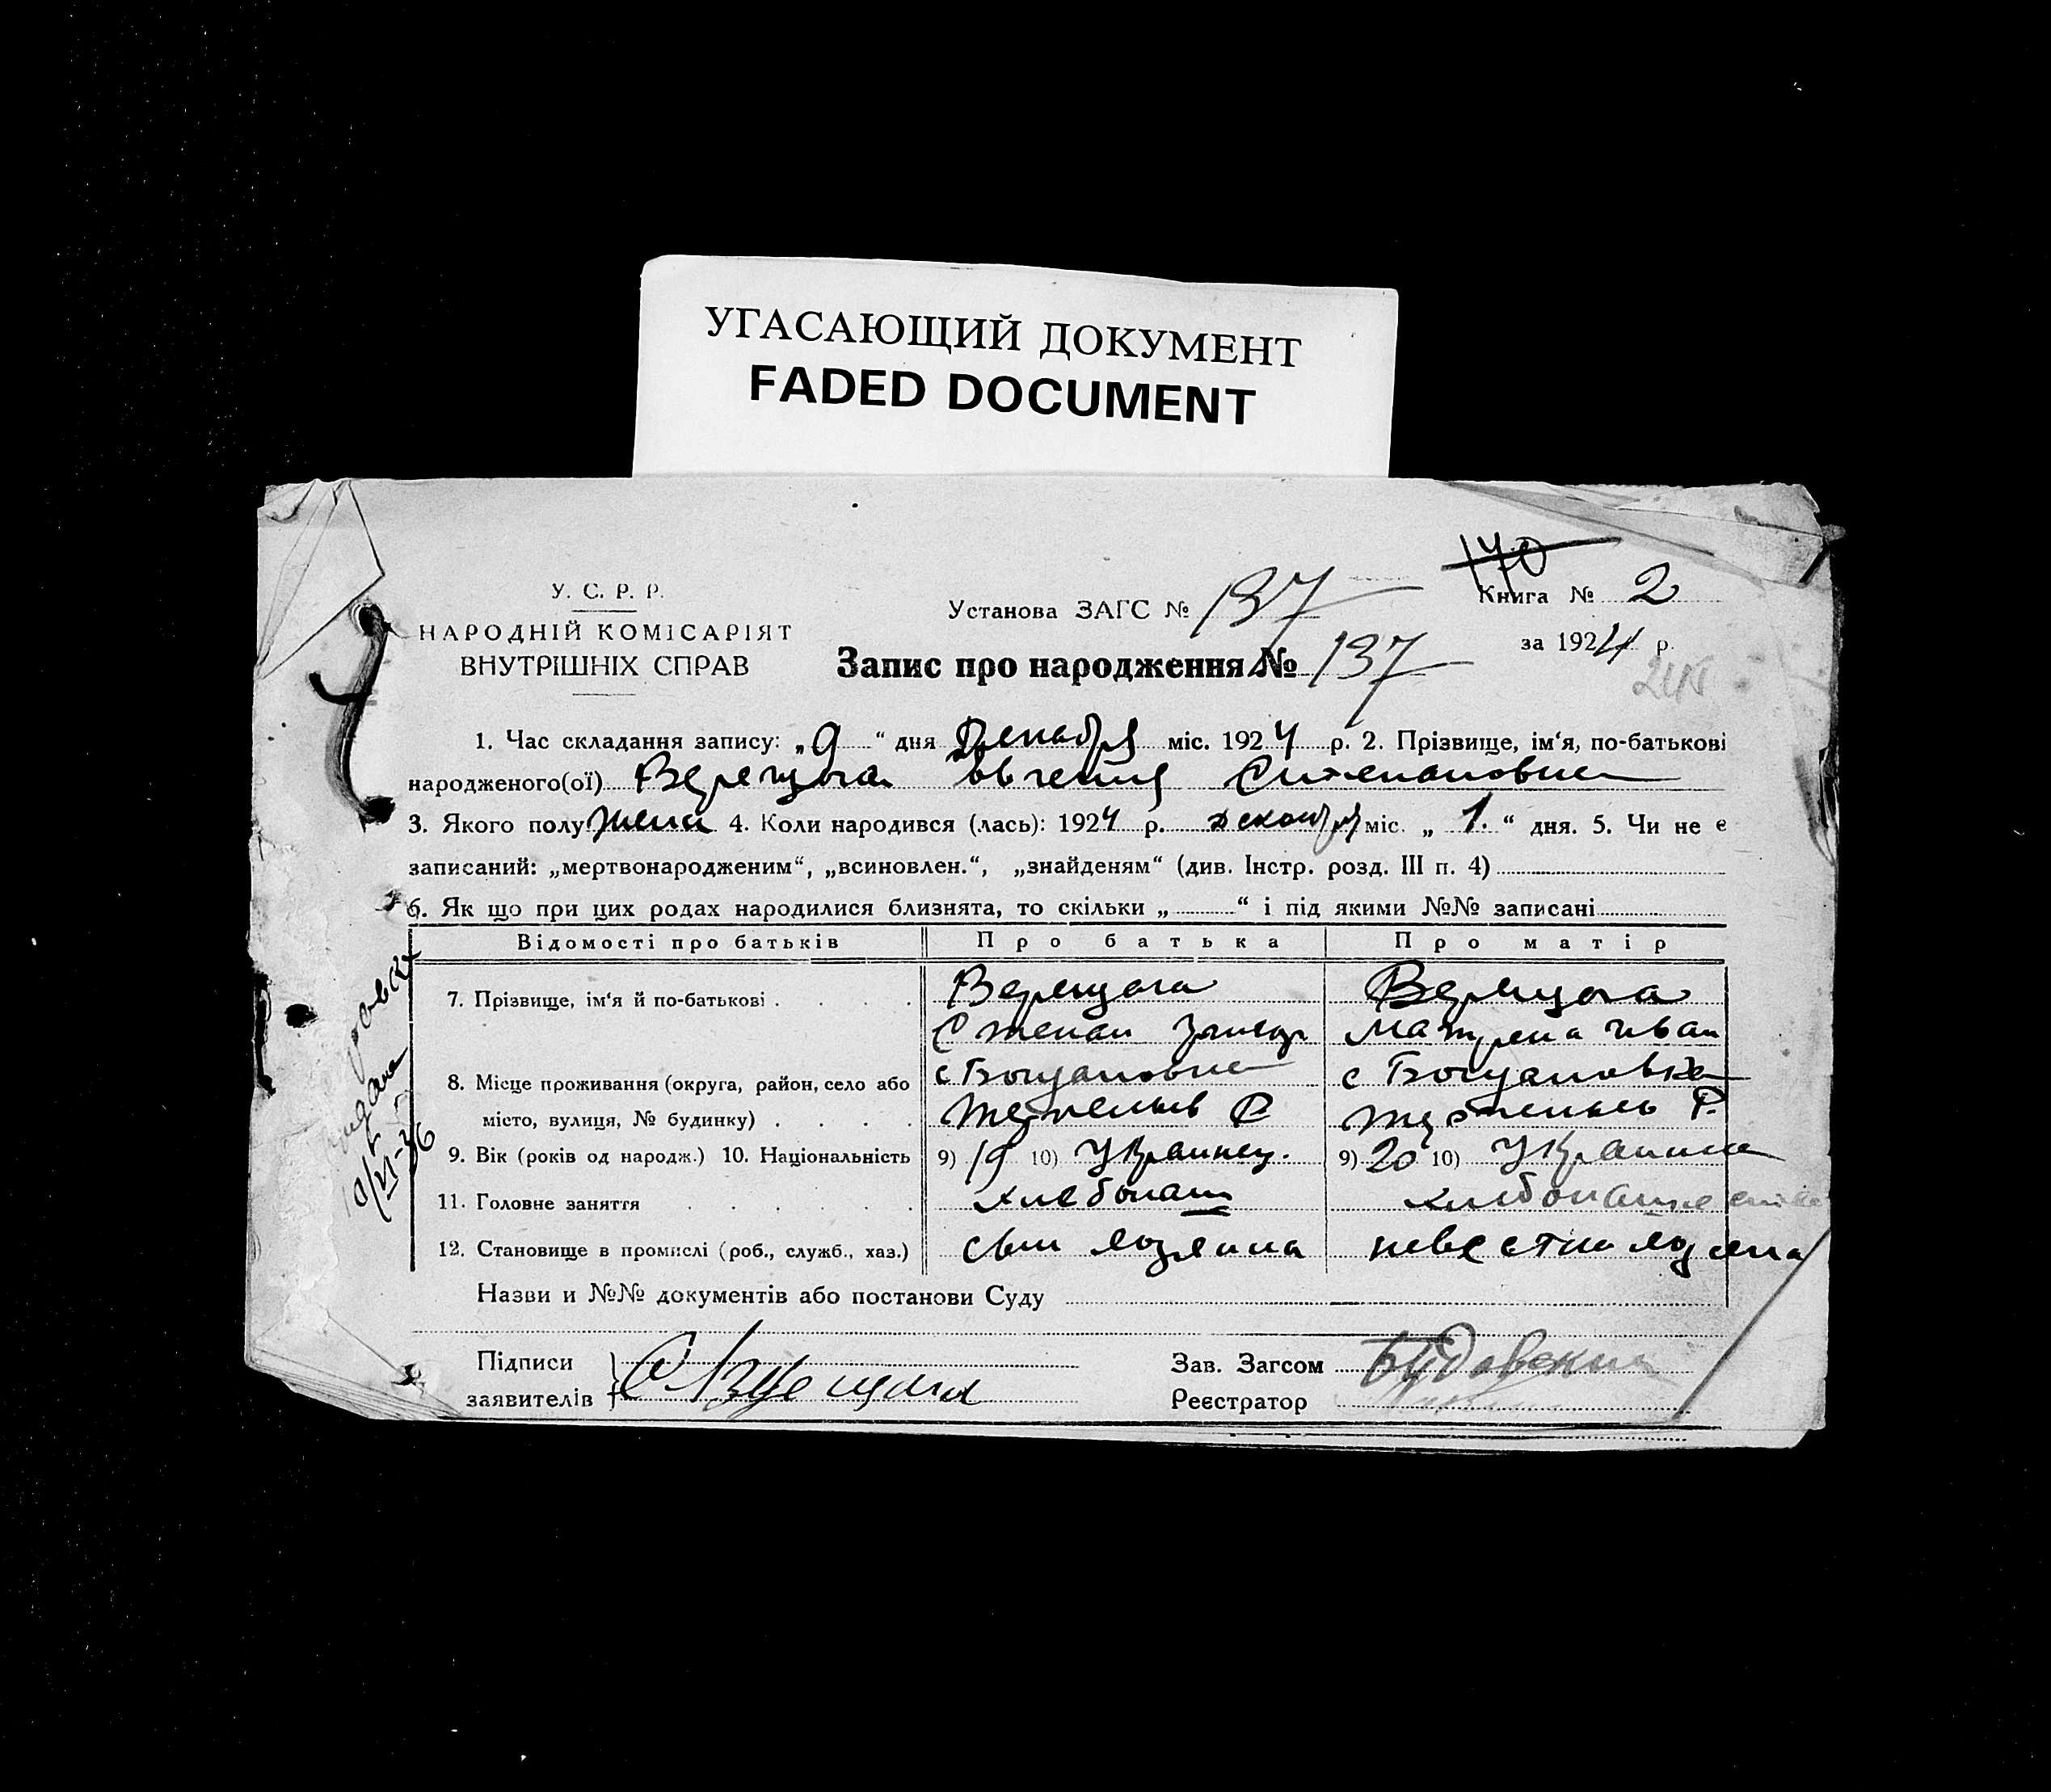 УГАСАЮЩИЙ ДОКУМЕНТ
FADED DOCUMENT
170
У. С. Р. Р.
Установа ЗАГС № 137
Книга № 2
НАРОДНІЙ КОМІСАРІЯТ
ВНУТРІШНІХ СПРАВ
Запис про народження № 137
за 1924 р.
1. Час складання запису: „9“ дня Декабря міс. 1924 р. 2. Прізвище, ім‘я, по-батькові
народженого(ої) Верещага Степановна
3. Якого полу жен 4. Коли народився (лась): 1924 р. декабря міс. „1.“ дня. 5. Чи не є
записаний: „мертвонародженим“, „всиновлен.“, „знайденям“ (див. Інстр. розд. III п. 4)
6. Як що при цих родах народилися близнята, то скільки „ “ і під якими №№ записані
Відомості про батьків Про батька Про матір
7. Прізвище, ім‘я й по-батькові Верещага Верещага
Степан Матрена Иван
8. Місце проживання (округа, район, село або с Богдановка с Богдановка
місто, вулиця, № будинку) Р.
9. Вік (років од народж.) 10. Національність 9) 19 10) Украинец. 9) 20 10) Украинка
11. Головне заняття хлебопаш
12. Становище в промислі (роб., служб., хаз.) сын хозяина невестка хозяина
Назви и №№ документів або постанови Суду
Підписи
заявителів С Верещага
Зав. Загсом
Реєстратор